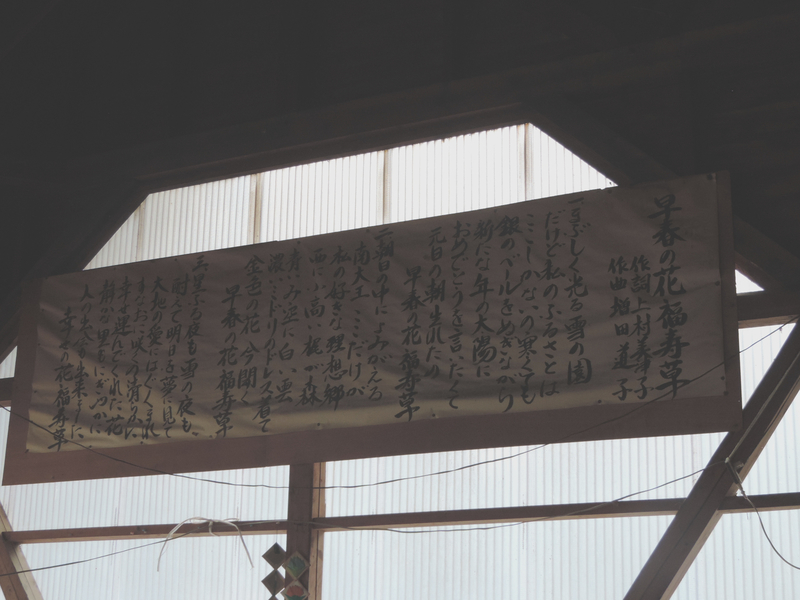 早春の花 福寿草
作詞 上村美津子
作曲 増田道子
一、まぶしく光る雪の園
だけど私のふるさとは
ここしかないの寒くても
銀のベールをぬぎながら
新たな年の太陽に
おめでとうを言いたくて
元日の朝生れたの
早春の花 福寿草
二、朝日の中によみがえる
南大王 ここだけが
私の好きな理想郷
西に小高い梶が森
青いみ空に白い雲
濃いミドリのドレス着て
金色の花 今開く
早春の花 福寿草
三、星ふる夜も雪の夜も
耐えて明日を夢に見て
大地の愛にはぐくまれ
すなおに咲いた清らかに
幸せ運んでくれた花
静かな里もにぎやかに
人の
幸せの花 福寿草